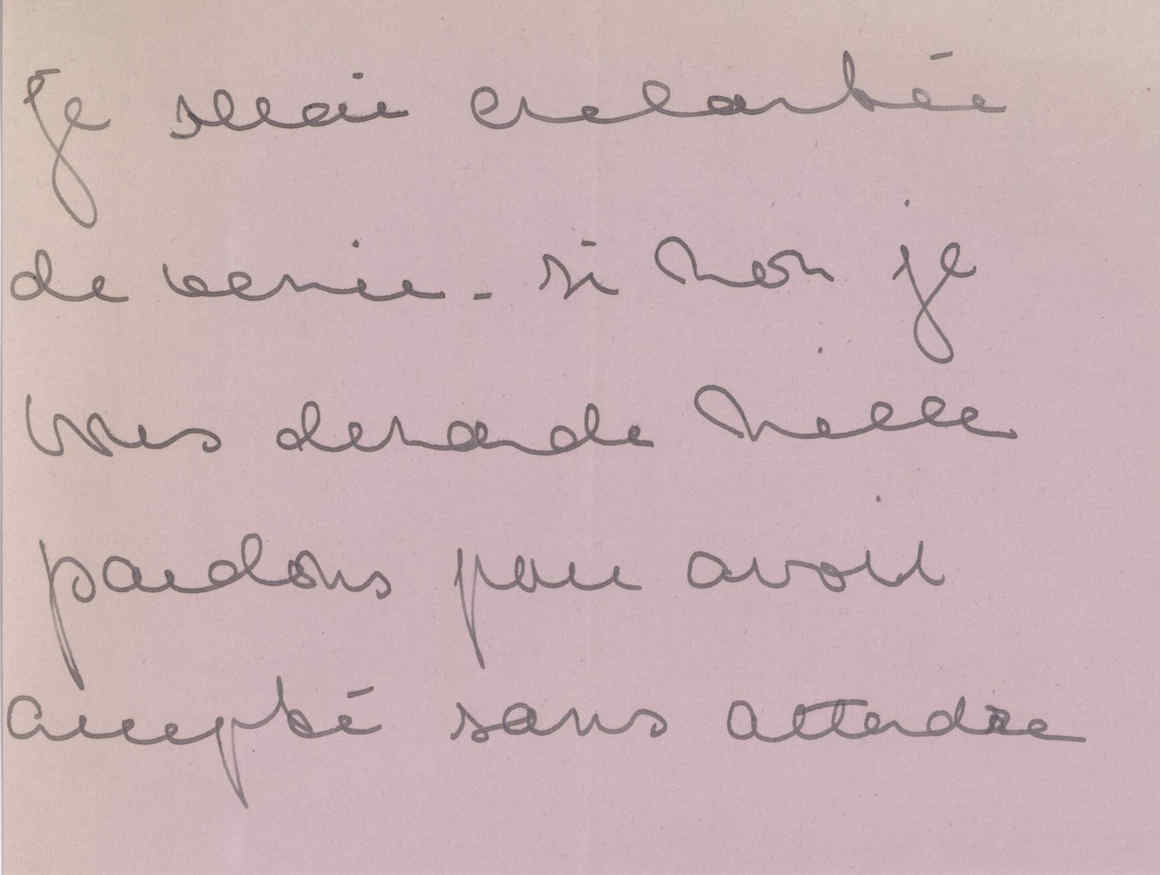 Je serai enchantée
de venir - si non je
vous demande mille
pardons pour avoir
accepté sans attendre